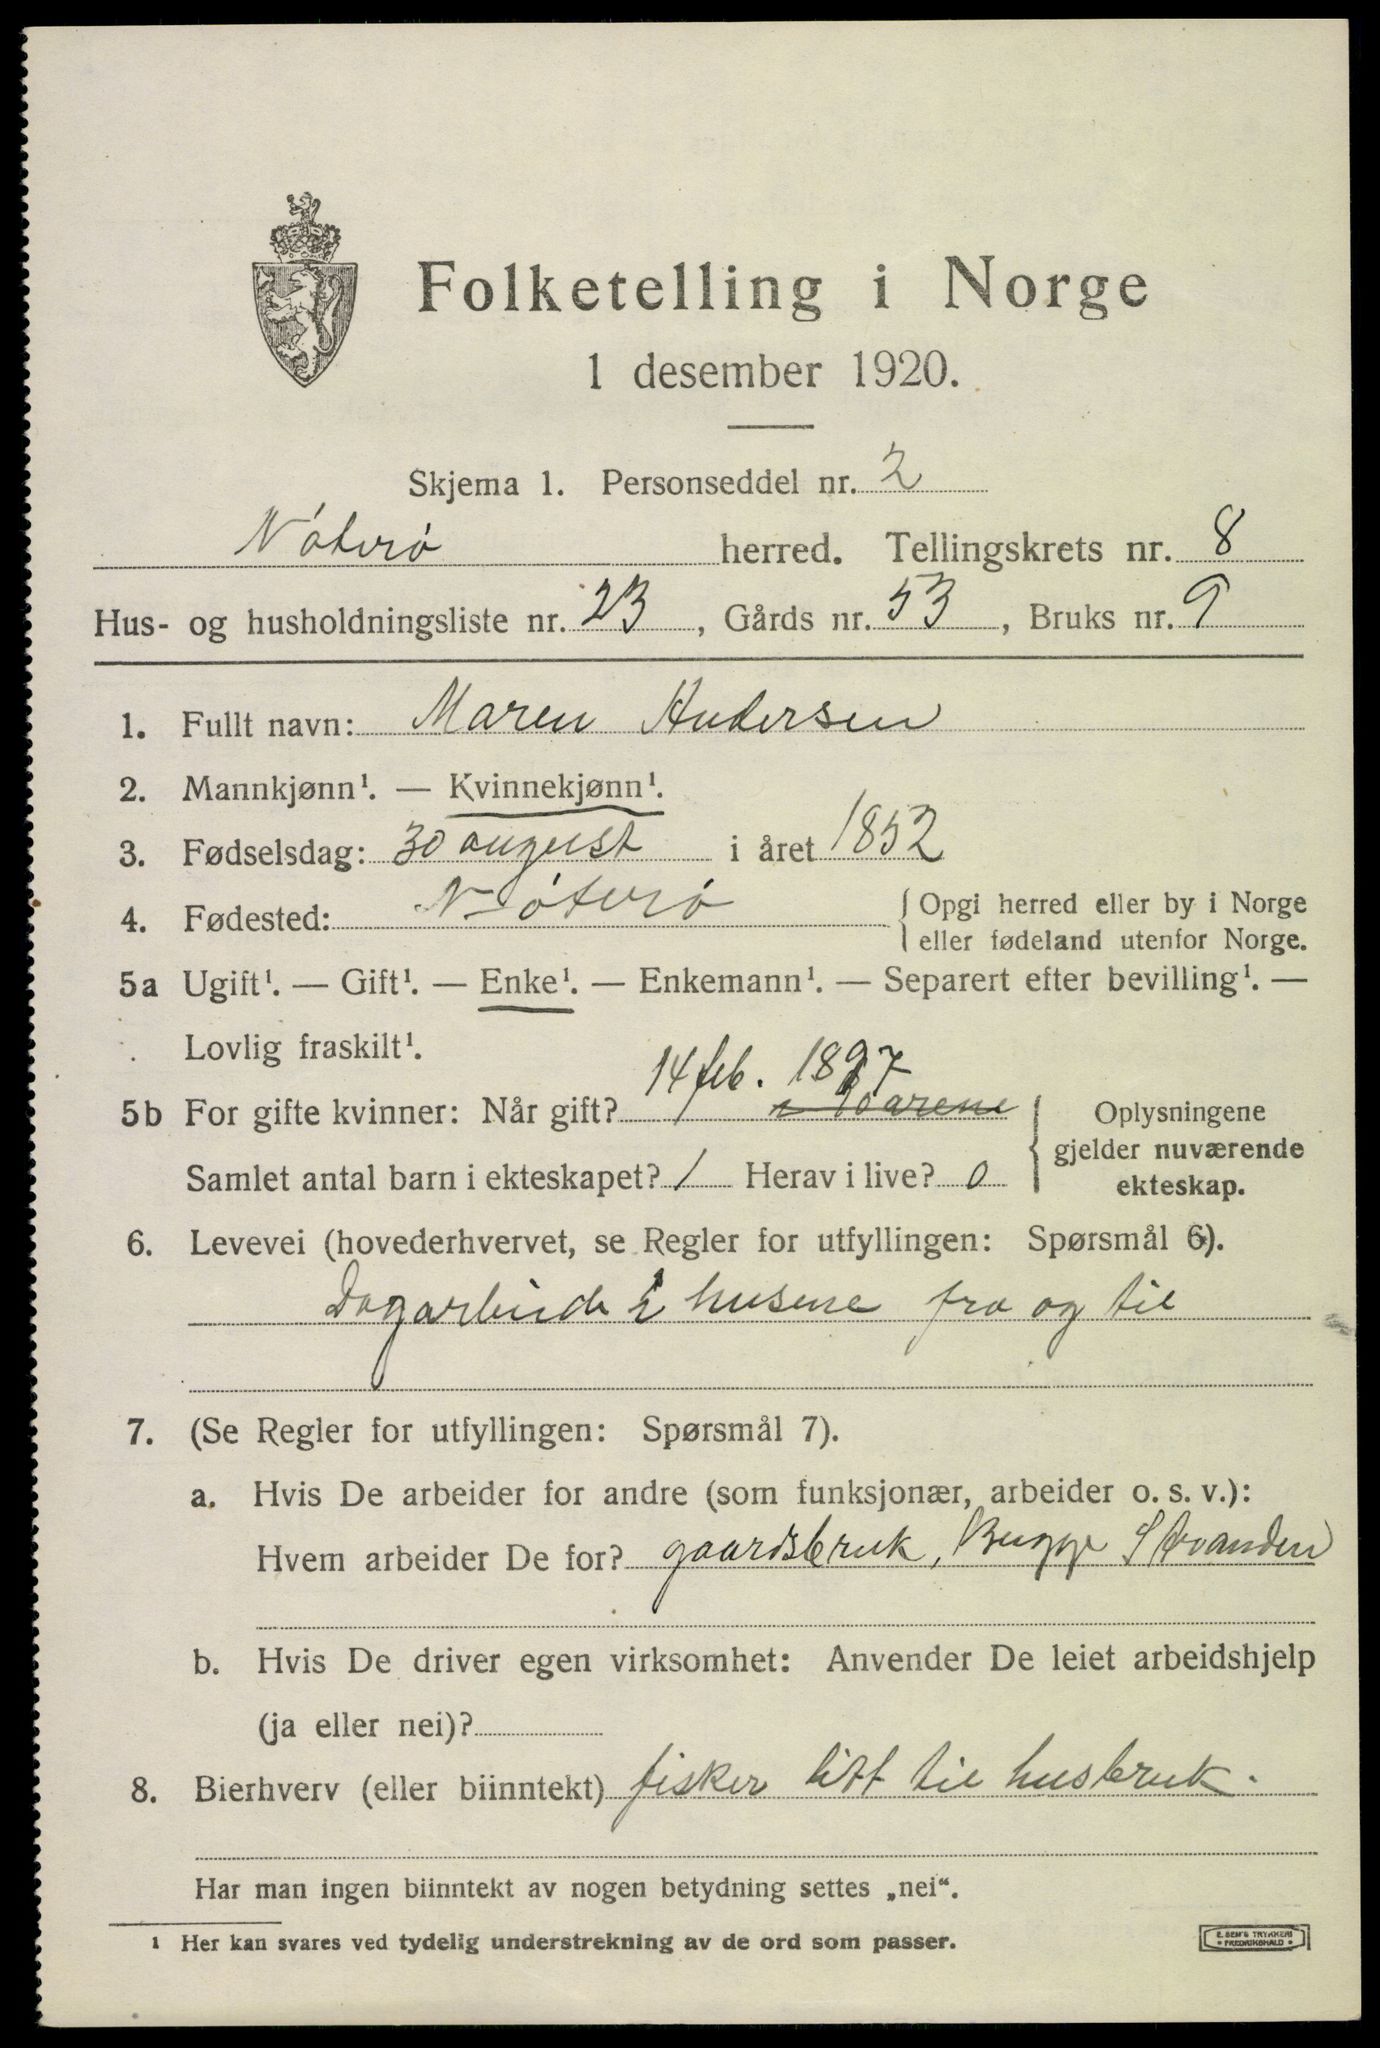 Folketelling i Norge
1 desember 1920.
Skjema 1. Personseddel nr. 2
Nøterø herred. Tellingskrets nr. 8
Hus- og husholdningsliste nr. 23, Gårds nr. 53, Bruks nr. 9
1. Fullt navn: Maren Andersen
2. Mannkjønn¹. — Kvinnekjønn¹.
3. Fødselsdag: 30 august i året 1852
4. Fødested: Nøterø { Opgi herred eller by i Norge
eller fødeland utenfor Norge.
5a Ugift¹. — Gift¹. — Enke¹. — Enkemann¹. — Separert efter bevilling¹. —
Lovlig fraskilt¹.
5b For gifte kvinner: Når gift? 14 feb. 1897
Samlet antal barn i ekteskapet? 1 Herav i live? 0
Oplysningene
gjelder nuværende
ekteskap.
6. Levevei (hovederhvervet, se Regler for utfyllingen: Spørsmål 6).
i husene fra og til
7. (Se Regler for utfyllingen: Spørsmål 7).
a. Hvis De arbeider for andre (som funksjonær, arbeider o. s. v.):
Hvem arbeider De for? gaardsbruk, Bugge
b. Hvis De driver egen virksomhet: Anvender De leiet arbeidshjelp
(ja eller nei)?
8. Bierhverv (eller biinntekt) fisker litt til husbruk.
Har man ingen biinntekt av nogen betydning settes „nei“.
¹ Her kan svares ved tydelig understrekning av de ord som passer.
E. SEM'S TRYKKERI
* FREDRIKSHALD *